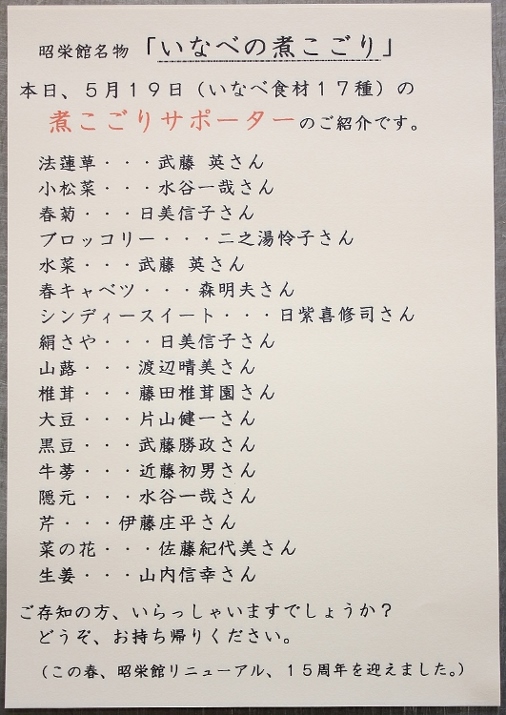 昭栄館名物「いなべの煮こごり」
本日、５月１９日（いなべ食材１７種）の
煮こごりサポーターのご紹介です。
法蓮草・・・武藤 英さん
小松菜・・・水谷一哉さん
春菊・・・日美信子さん
ブロッコリー・・・二之湯怜子さん
水菜・・・武藤 英さん
春キャベツ・・・森明夫さん
シンディースイート・・・日紫喜修司さん
絹さや・・・日美信子さん
山蕗・・・渡辺晴美さん
椎茸・・・藤田椎茸園さん
大豆・・・片山健一さん
黒豆・・・武藤勝政さん
牛蒡・・・近藤初男さん
隠元・・・水谷一哉さん
芹・・・伊藤庄平さん
菜の花・・・佐藤紀代美さん
生姜・・・山内信幸さん
ご存知の方、いらっしゃいますでしょうか？
どうぞ、お持ち帰りください。
（この春、昭栄館リニューアル、１５周年を迎えました。）